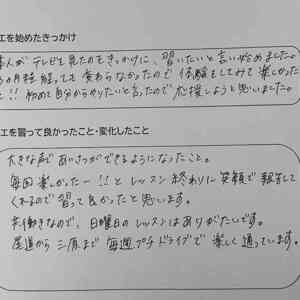 エを始めたきっかけ
本人がテレビを見たのをきっかけに、習いたいと言い始めました。
ヶ月経っても変わらなかったので体験をしてみて楽しかった
と!! 初めて自分からやりたいと言ったので応援しようと思いました。
エを習って良かったこと・変化したこと
大きな声であいさつができるようになったこと。
毎回楽しかったー!!とレッスン終わりに笑顔で報告して
くれるので習って良かったと思います。
共働きなので、日曜日のレッスンはありがたいです。
尾道から三原まで毎週プチドライブで楽しく通っています。